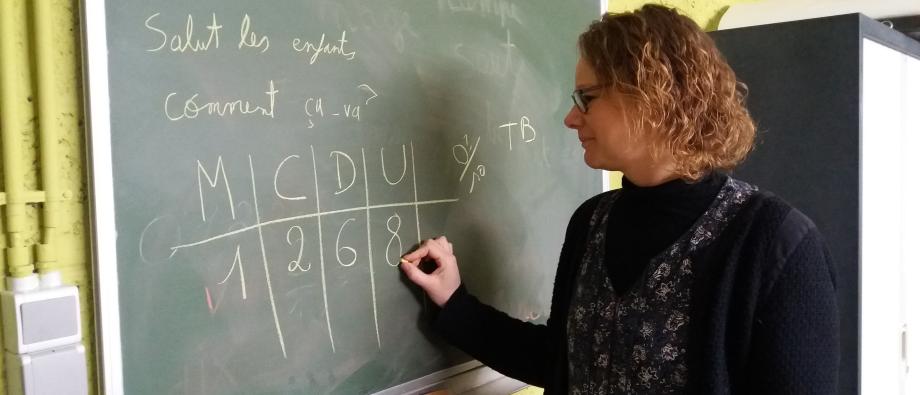 Salut les enfants
comment ça-va?
M C D U
1 2 6 8
TB